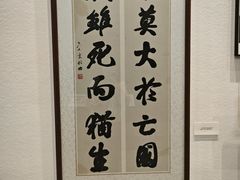 莫大於亡國
雖死而猶生